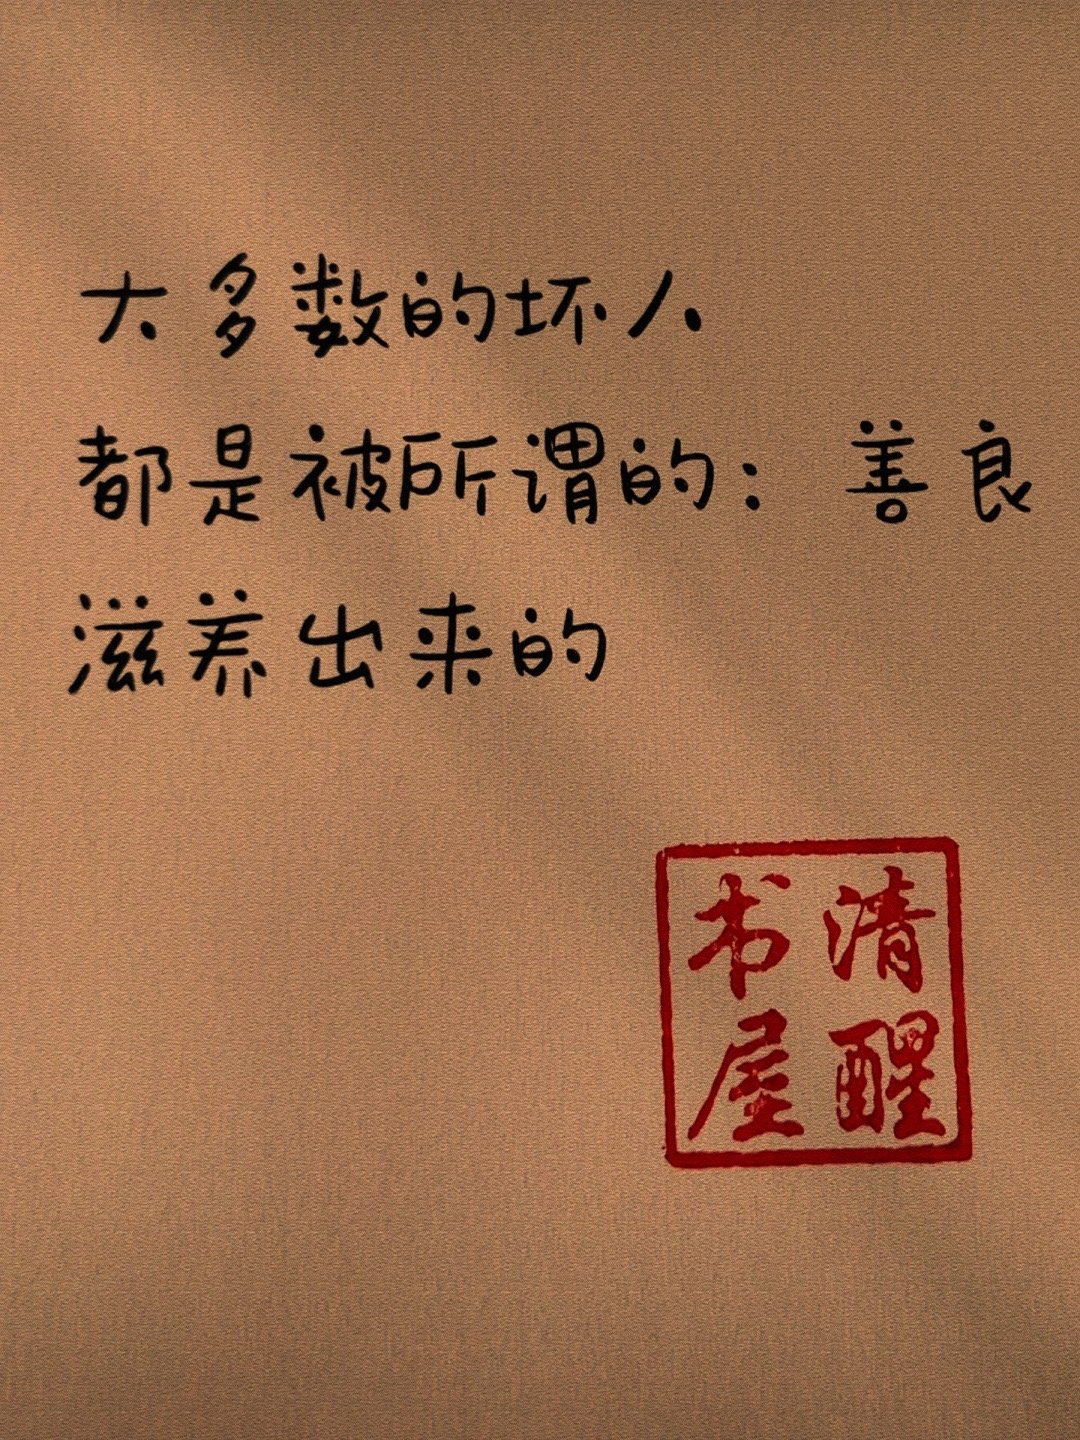 大多数的坏人
都是被所谓的：善良
滋养出来的
清醒
书屋